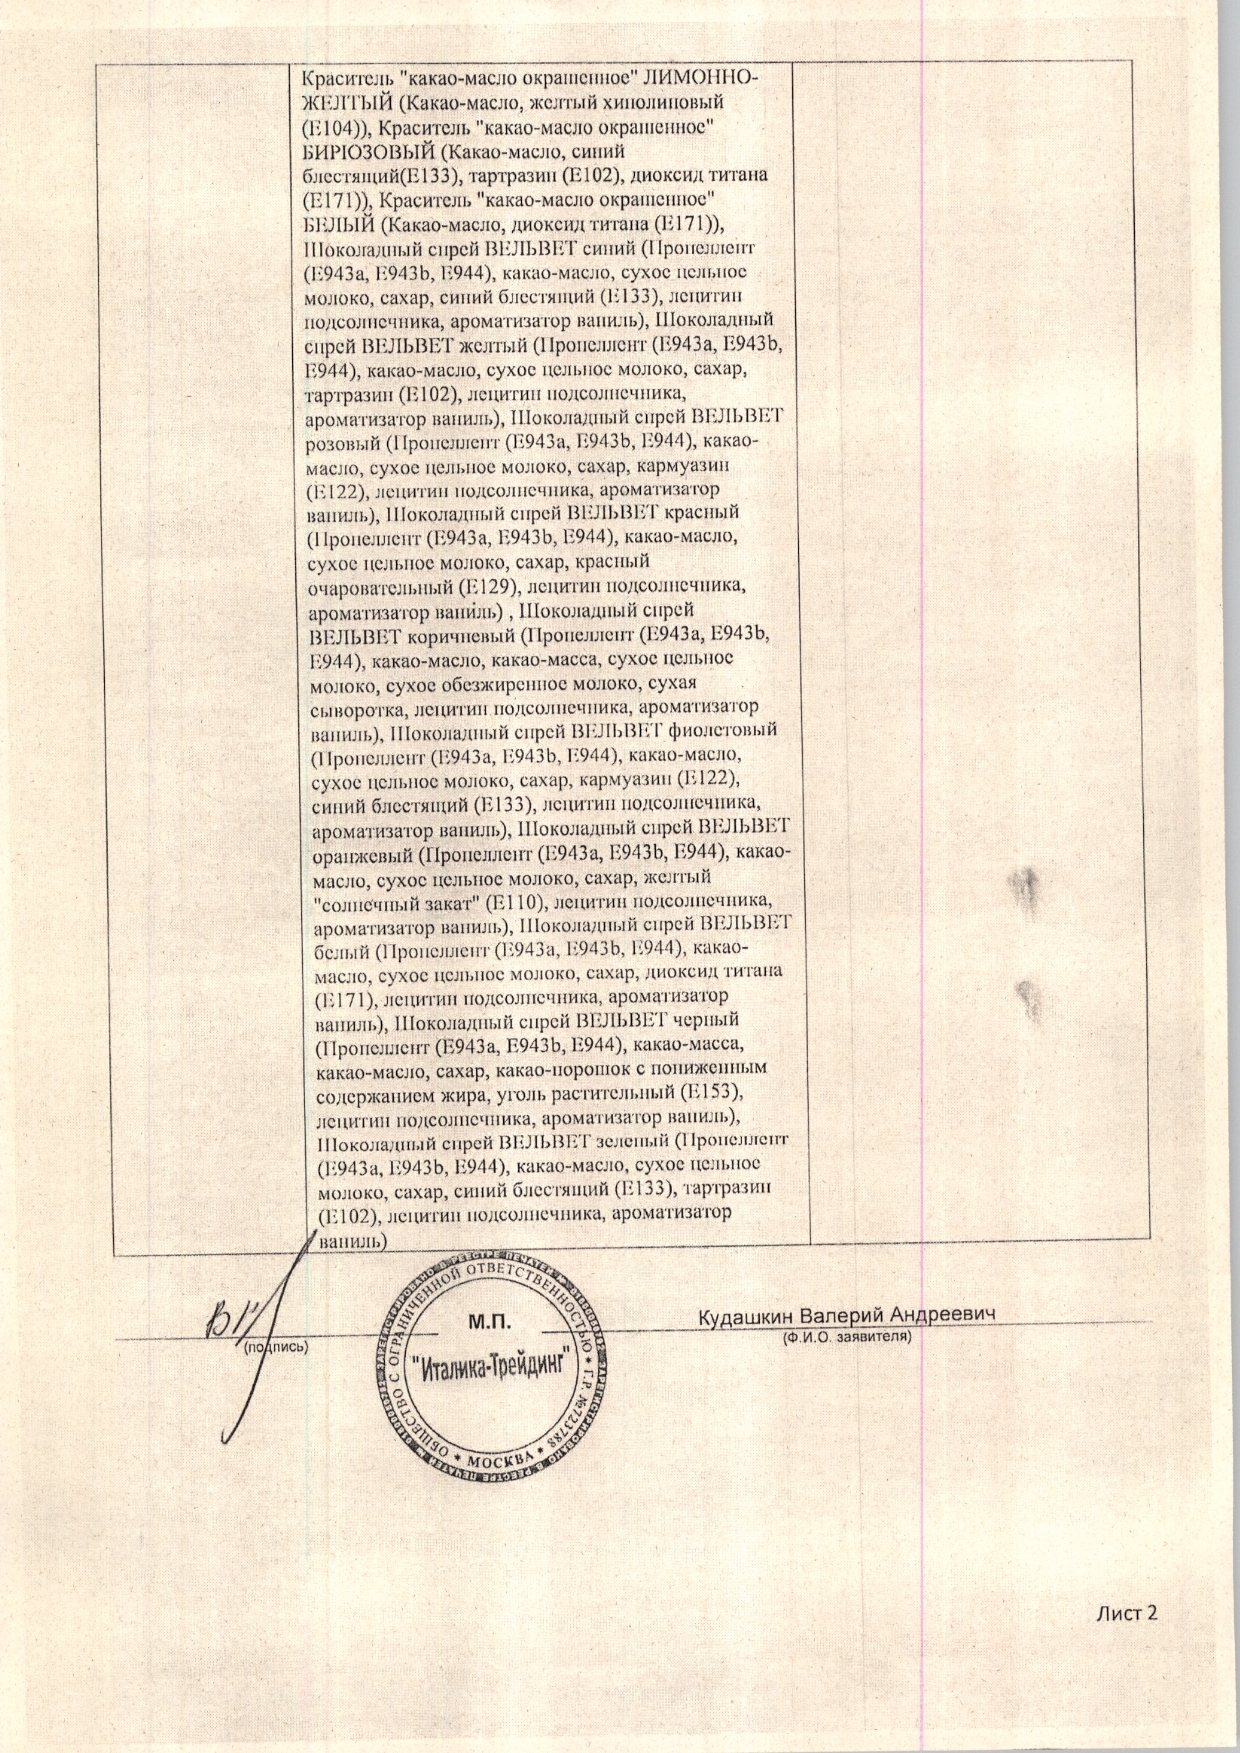 Краситель "какао-масло окрашенное" ЛИМОННО-
ЖЕЛТЫЙ (Какао-масло, желтый хинолиновый
(Е104)), Краситель "какао-масло окрашенное"
БИРЮЗОВЫЙ (Какао-масло, синий
блестящий(Е133), тартразин (Е102), диоксид титана
(Е171)), Краситель "какао-масло окрашенное"
БЕЛЫЙ (Какао-масло, диоксид титана (Е171)),
Шоколадный спрей ВЕЛЬВЕТ синий (Пропеллент
(Е943а, Е943b, Е944), какао-масло, сухое цельное
молоко, сахар, синий блестящий (Е133), лецитин
подсолнечника, ароматизатор ваниль), Шоколадный
спрей ВЕЛЬВЕТ желтый (Пропеллент (Е943а, Е943b,
Е944), какао-масло, сухое цельное молоко, сахар,
тартразин (Е102), лецитин подсолнечника,
ароматизатор ваниль), Шоколадный спрей ВЕЛЬВЕТ
розовый (Пропеллент (Е943а, Е943b, Е944), какао-
масло, сухое цельное молоко, сахар, кармуазин
(Е122), лецитин подсолнечника, ароматизатор
ваниль), Шоколадный спрей ВЕЛЬВЕТ красный
(Пропеллент (Е943а, Е943b, Е944), какао-масло,
сухое цельное молоко, сахар, красный
очаровательный (Е129), лецитин подсолнечника,
ароматизатор ваниль) , Шоколадный спрей
ВЕЛЬВЕТ коричневый (Пропеллент (Е943а, Е943b,
Е944), какао-масло, какао-масса, сухое цельное
молоко, сухое обезжиренное молоко, сухая
сыворотка, лецитин подсолнечника, ароматизатор
ваниль), Шоколадный спрей ВЕЛЬВЕТ фиолетовый
(Пропеллент (Е943а, Е943b, Е944), какао-масло,
сухое цельное молоко, сахар, кармуазин (Е122),
синий блестящий (Е133), лецитин подсолнечника,
ароматизатор ваниль), Шоколадный спрей ВЕЛЬВЕТ
оранжевый (Пропеллент (Е943а, Е943b, Е944), какао-
масло, сухое цельное молоко, сахар, желтый
"солнечный закат" (Е110), лецитин подсолнечника,
ароматизатор ваниль), Шоколадный спрей ВЕЛЬВЕТ
белый (Пропеллент (Е943а, Е943b, Е944), какао-
масло, сухое цельное молоко, сахар, диоксид титана
(Е171), лецитин подсолнечника, ароматизатор
ваниль), Шоколадный спрей ВЕЛЬВЕТ черный
(Пропеллент (Е943а, Е943b, Е944), какао-масса,
какао-масло, сахар, какао-порошок с пониженным
содержанием жира, уголь растительный (Е153),
лецитин подсолнечника, ароматизатор ваниль),
Шоколадный спрей ВЕЛЬВЕТ зеленый (Пропеллент
(Е943а, Е943b, Е944), какао-масло, сухое цельное
молоко, сахар, синий блестящий (Е133), тартразин
(Е102), лецитин подсолнечника, ароматизатор
ваниль)
(подпись)
ОБЩЕСТВО С ОГРАНИЧЕННОЙ ОТВЕТСТВЕННОСТЬЮ * Г.Р. №723788
* МОСКВА *
ЗАРЕГИСТРИРОВАНО В РЕЕСТРЕ ПЕЧАТЕЙ
М.П.
"Италика-Трейдинг"
Кудашкин Валерий Андреевич
(Ф.И.О. заявителя)
Лист 2